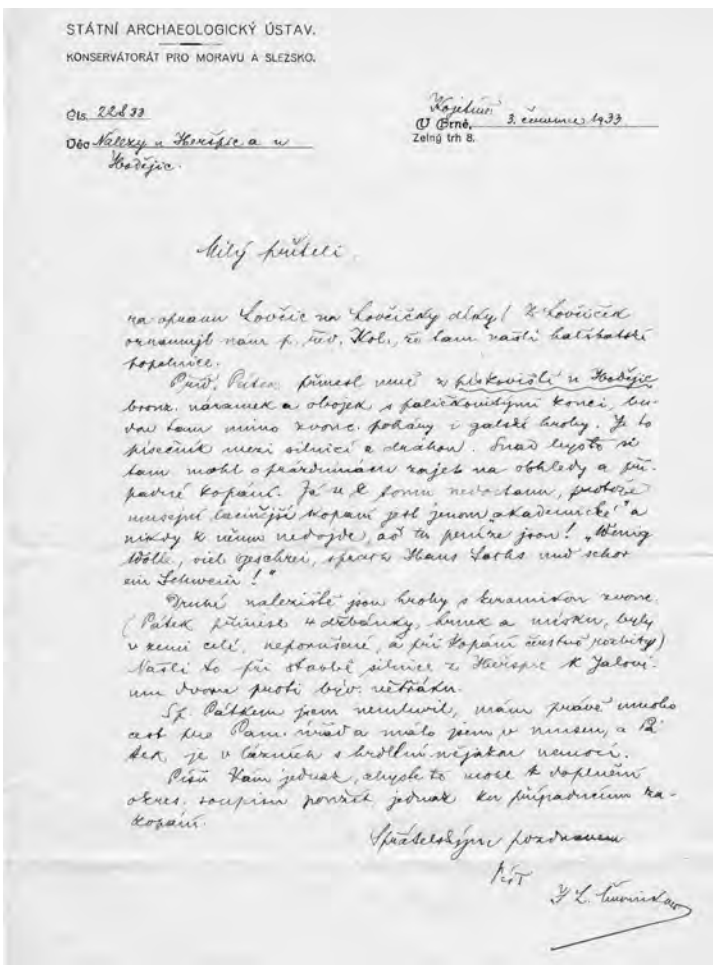 STÁTNÍ ARCHAEOLOGICKÝ ÚSTAV.
KONSERVÁTORÁT PRO MORAVU A SLEZSKO.
Čís. 228 33
Kojetín
V Brně, 3. července 1933
Zelný trh 8.
Věc Nálezy u Heršpic a u
Hodějic.
Milý příteli,
na opravu Lovčic na Lovčičky díky! Z Lovčiček
oznámil nám p. Kol., že tam našli halštatské
popelnice.
Pátek přinesl mně z pískoviště u Hodějic
bronz. náramek a obojek s paličkovitými konci, bu-
dou tam mimo zvonc. poháry i galské hroby. Je to
písečník mezi silnicí a dráhou. Snad byste si
tam mohl o prázdninách zajet na obhledy a pří-
padné kopání. Já se k tomu nedostanu, protože
musejní kopání jest jenom „akademické“ a
nikdy k němu nedojde, ač tu peníze jsou! „Wenig
Wolle, viel Geschrei, sprach Hans Sachs und schor
ein Schwein!“
Druhé naleziště jsou hroby s keramikou zvonc.
(Pátek přinesl 4 džbánky, hrnek a misku, byly
v zemi celé, neporušené, a při kopání rozbity)
Našli to při stavbě silnice z Heršpic k Jalovi-
mu dvoru proti býv. větřáku.
S p. Pátkem jsem nemluvil, mám právě mnoho
cest pro Pam. úřad a málo jsem v museu, a Pá-
tek je v lázních s hrdlem nějakou nemocí.
Píši Vám jednak, abyste to mohl k doplnění
okres. soupisu použít, jednak ku případnému za-
kopání.
S přátelským pozdravem
I L. Červinka